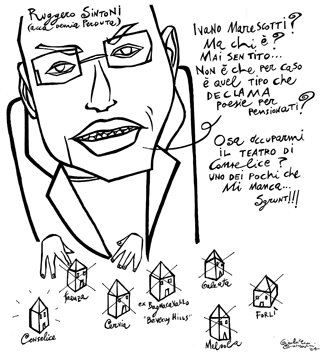 Ruggero Sintoni
Ivano Marescotti?
Ma chi è?
Mai sentito...
Non è che per caso
è quel tipo che
declama
poesie per
pensionati?
Osa occuparmi
il teatro di
Conselice?
Uno dei pochi che
mi manca...
Sgrunt!!!
Conselice
Faenza
Cervia
ex Bagnacavallo
"Beverly Hills"
Galeata
Meldola
Forlì